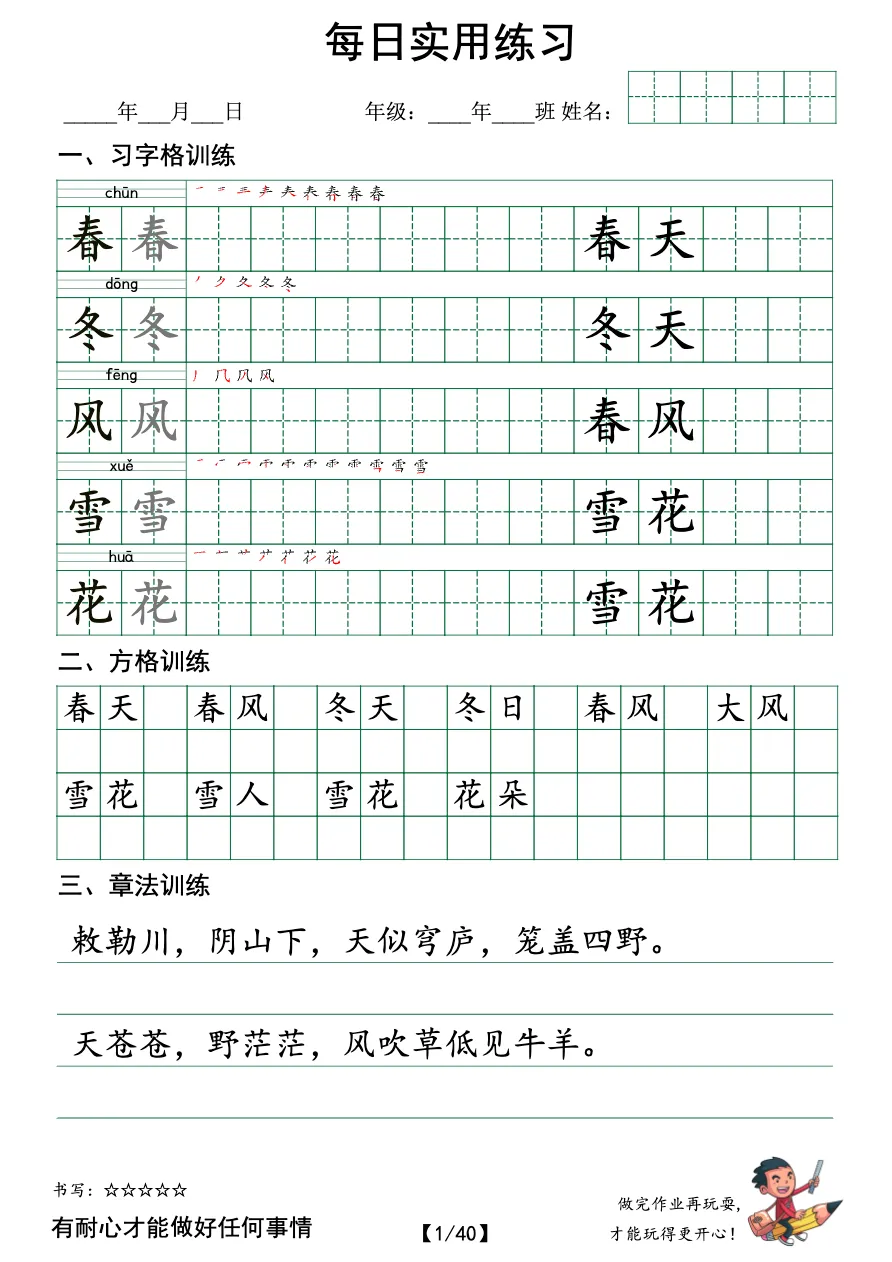 每日实用练习
_____年___月___日 年级：____年____班 姓名：
一、习字格训练
chūn
春 春 春 天
dōng
冬 冬 冬 天
fēng
风 风 春 风
xuě
雪 雪 雪 花
huā
花 花 雪 花
二、方格训练
春 天 春 风 冬 天 冬 日 春 风 大 风
雪 花 雪 人 雪 花 花 朵
三、章法训练
敕勒川，阴山下，天似穹庐，笼盖四野。
天苍苍，野茫茫，风吹草低见牛羊。
书写：☆☆☆☆☆
有耐心才能做好任何事情
【1/40】
做完作业再玩耍，
才能玩得更开心！